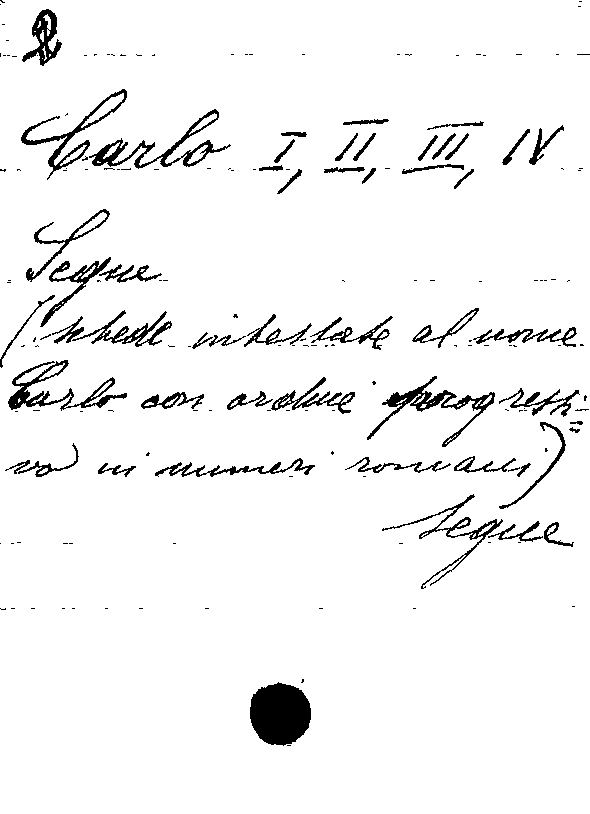 2
Carlo I, II, III, IV
Segue
(schede intestate al nome
Carlo con ordine progressi=
vo in numeri romani)
segue